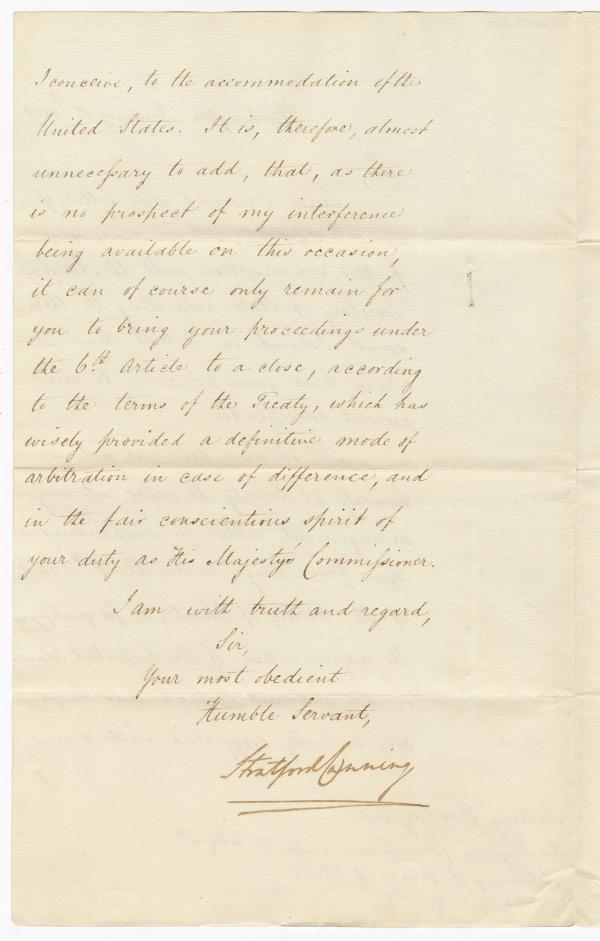 I conceive, to the accommodation of the
United States. It is, therefore, almost
unneceſsary to add, that, as there
is no prospect of my interference
being available on this occasion,
it can of course only remain for
you to bring your proceedings under
the 6th Article to a close, according
to the terms of the Treaty, which has
wisely provided a definitive mode of
arbitration in case of difference, and
in the fair conscientious spirit of
your duty as His Majesty's Commiſsioner.
I am with truth and regard,
Sir,
Your most obedient
Humble Servant,
Stratford Canning